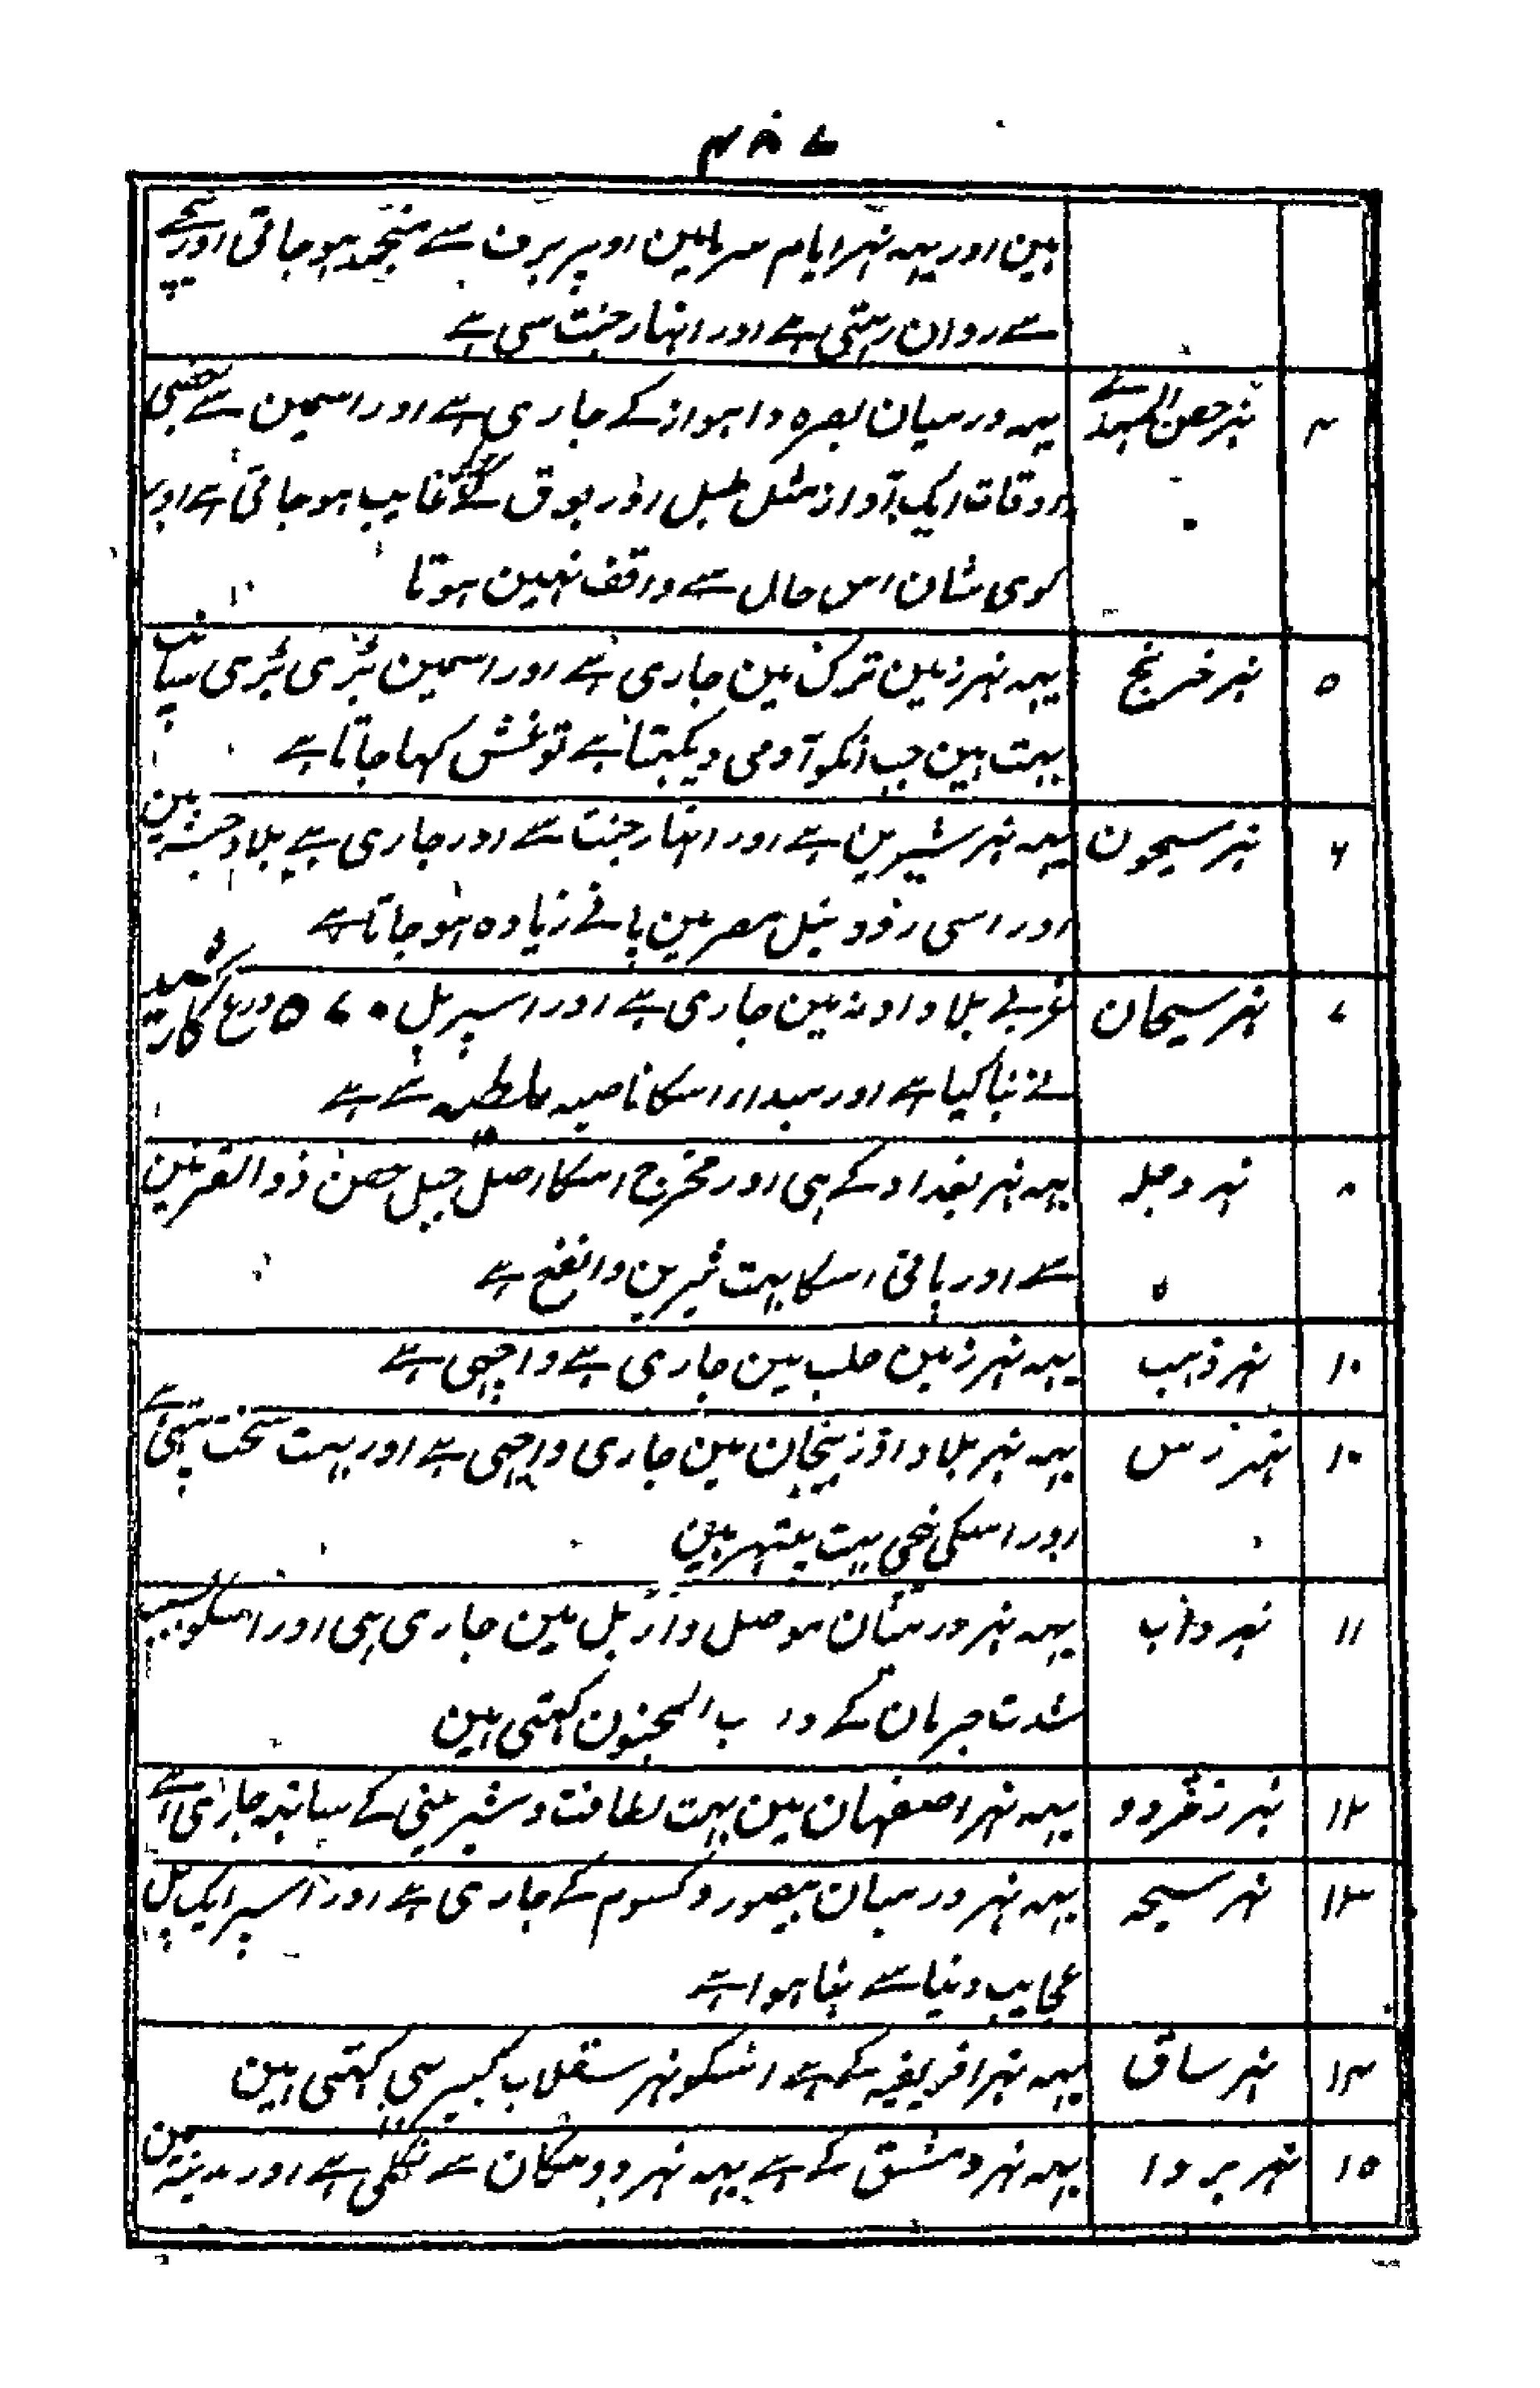 ہین اور یہہ نہر ایام سرما مین اوپر برف سے منجمد ہو جاتی اور نیچے
سے روان رہتی ہے اور انہار جنت سی ہے
۴ نہر حصن المہدے یہہ درمیان بصرہ و اہواز کے جاری ہے اور اسمین سے بعضی
اوقات ایک آواز مثل طبل اور بوق کے غایب ہو جاتی ہے اور
کوی شان اس حال سے واقف نہین ہوتا
۵ نہر خرنج یہہ نہر زمین ترک مین جاری ہے اور اسمین بڑی بڑی سانپ
بہت ہین جب انکو آدمی دیکہتا ہے تو غش کہا جاتا ہے
۶ نہر سیحون یہہ نہر شیرین ہے اور انہار جنت سے اور جاری ہے بلاد حبشہ مین
اور اسی رود نیل مصر مین پانے زیادہ ہو جاتا ہے
۷ نہر سیحان غربے بلاد اونہ مین جاری ہے اور اسپر پل ۵۷۰ درع کا رشید
نے بنا کیا ہے اور مبداء اسکا ناصیہ ملطیہ سے ہے
۸ نہر دجلہ یہہ نہر بغداد کے ہی اور مخرج اسکا اصل جبل حصن ذو القرنین
سے اور پانی اسکا بہت شیرین و انفع ہے
۱۰ نہر ذہب یہہ نہر زمین حلب مین جاری ہے و اچہی ہے
۱۰ نہر زس یہہ نہر بلاد اوزبیجان مین جاری و اچہی ہے اور بہت سخت بہتی ہے
اور اسکی نحی بہت پتہر ہین
۱۱ نہر واب یہہ نہر درمیان موصل و اربل مین جاری ہی اور اسکو بسبب
شدت جریان کے واب المجنون کہتی ہین
۱۲ نہر زفرود یہہ نہر اصفہان مین بہت لطافت و شیرینی کے ساتہہ جاری ہے
۱۳ نہر سبحہ یہہ نہر درمیان بیصور و کسوم کے جاری ہے اور اسپر ایک پل
عجایب دنیا سے بنا ہوا ہے
۱۴ نہر ساق یہہ نہر افریقیہ کے ہے اسکو نہر سقلاب کبیر بہی کہتی ہین
۱۵ نہر بردا یہہ نہر دمشق کے ہے یہہ نہر دو مکان سے نکلی ہے اور مدینہ مین